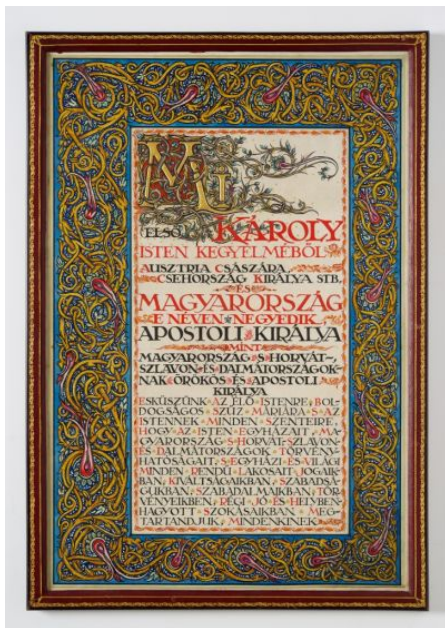 MI
ELSŐ KÁROLY
ISTEN KEGYELMÉBŐL
AUSZTRIA CSÁSZÁRA,
CSEHORSZÁG KIRÁLYA STB.
ÉS
MAGYARORSZÁG
E NÉVEN NEGYEDIK
APOSTOLI KIRÁLYA
MINT
MAGYARORSZÁG S HORVÁT-,
SZLAVON- ÉS DALMÁTORSZÁGOK-
NAK ÖRÖKÖS ÉS APOSTOLI
KIRÁLYA
ESKÜSZÜNK AZ ÉLŐ ISTENRE, BOL-
DOGSÁGOS SZŰZ MÁRIÁRA S AZ
ISTENNEK MINDEN SZENTEIRE,
HOGY AZ ISTEN EGYHÁZAIT, MA-
GYARORSZÁG S HORVÁT- SZLAVON-
ÉS DALMÁTORSZÁGOK TÖRVÉNY-
HATÓSÁGAIT, S EGYHÁZI ÉS VILÁGI
MINDEN RENDŰ LAKOSAIT JOGAIK-
BAN, KIVÁLTSÁGAIKBAN, SZABADSÁ-
GUKBAN, SZABADALMAIKBAN, TÖR-
VÉNYEIKBEN, RÉGI JÓ ÉS HELYBEN-
HAGYOTT SZOKÁSAIKBAN MEG-
TARTANDJUK, MINDENKINEK